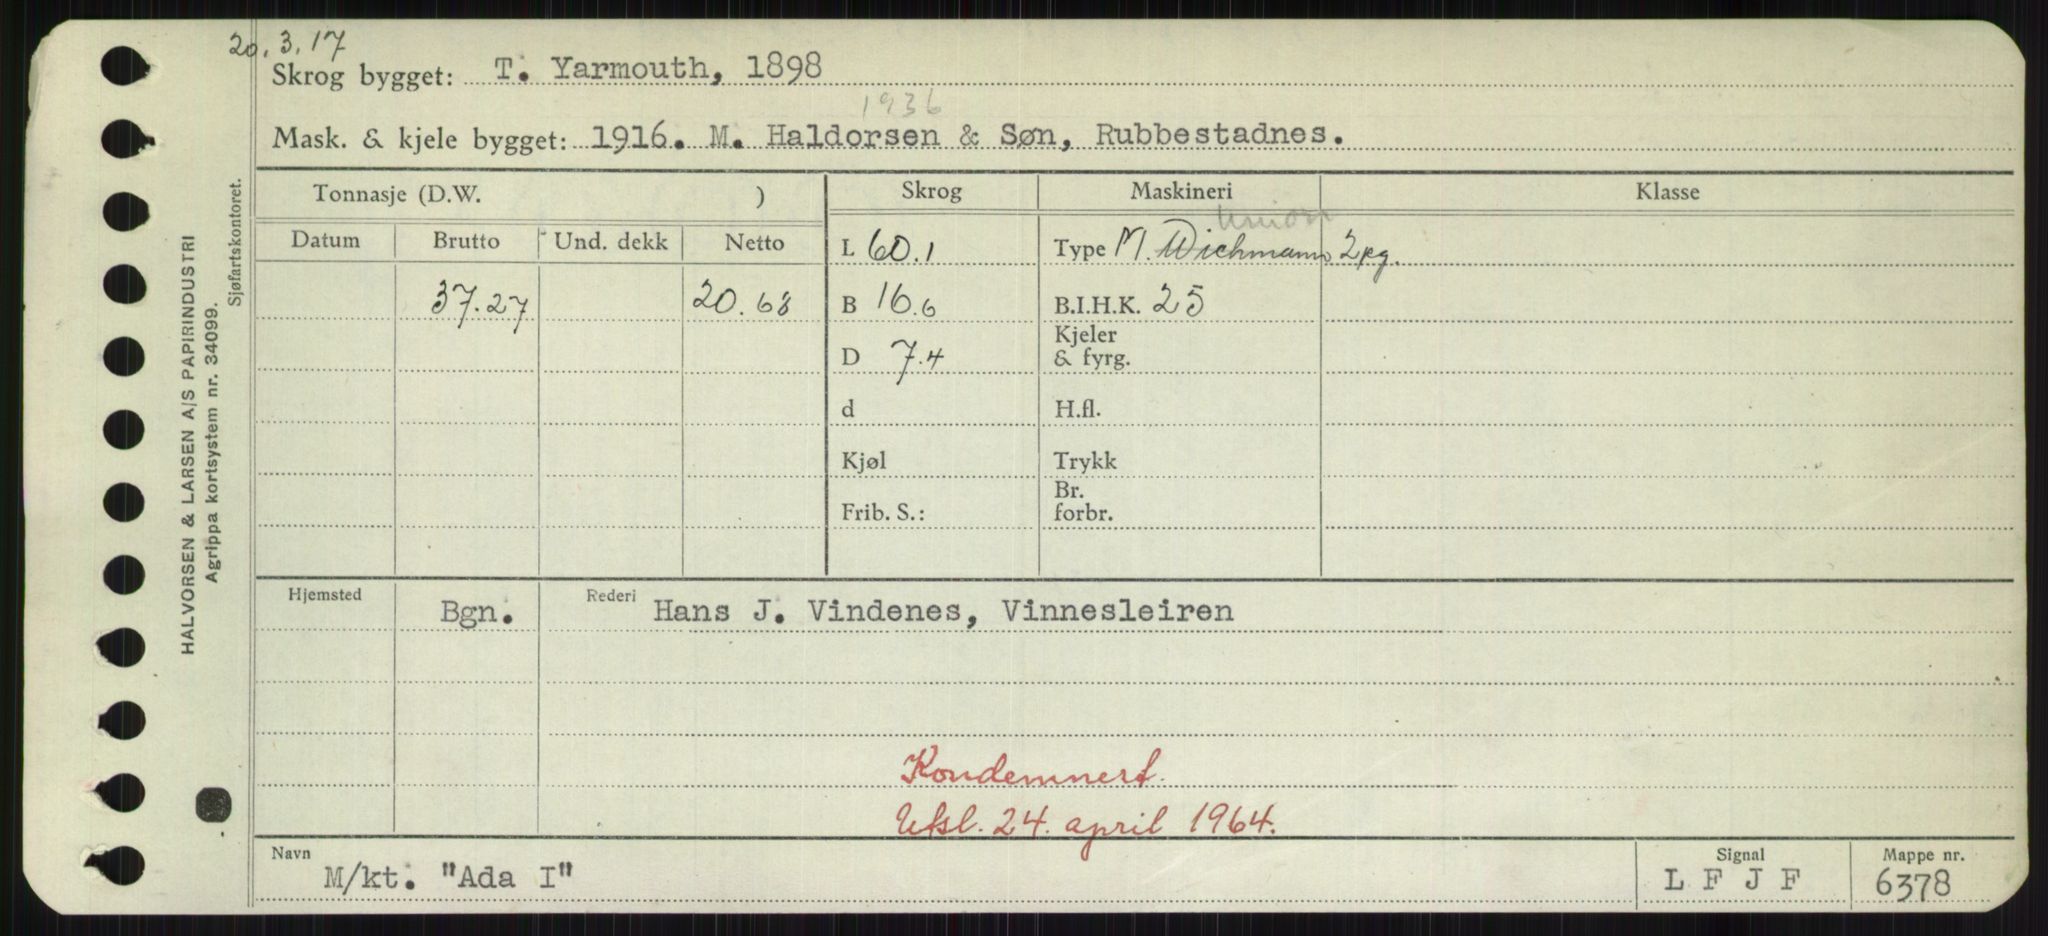 20.3.17
Skrog bygget: T. Yarmouth, 1898
1936
Mask. & kjele bygget: 1916. M. Haldorsen & Søn, Rubbestadnes.
Tonnasje (D.W. ) Skrog Maskineri Klasse
Union
Datum Brutto Und. dekk Netto L 60.1 Type M. Wichmann 2 pg.
37.27 20.68 B 16.6 B.I.H.K. 25
Kjeler
D 7.4 & fyrg.
d H.fl.
Kjøl Trykk
Br.
Frib. S.: forbr.
Hjemsted Bgn. Rederi Hans J. Vindenes, Vinnesleiren
Kondemnert.
Utsl. 24. april 1964.
Navn Signal Mappe nr.
M/kt. "Ada I" L F J F 6378
HALVORSEN & LARSEN A/S PAPIRINDUSTRI
Agrippa kortsystem nr. 34099.
Sjøfartskontoret.